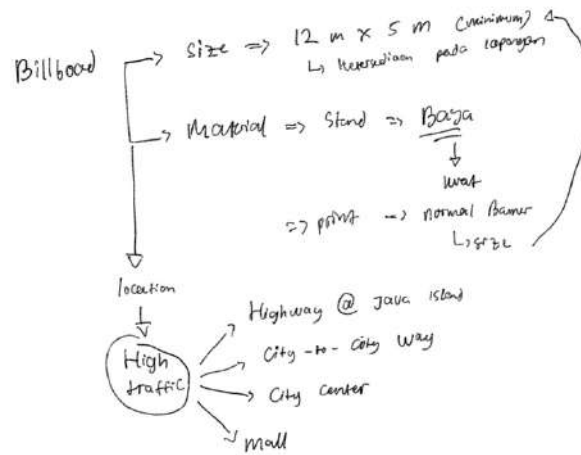 Billboad
Size => 12 m x 5 m (minimum)
↳ Ketersediaan pada lapangan
Material => Stand => Baja
kuat
=> print -> normal Banner
↳ size
location
High traffic
Highway @ Java island
City -to- City Way
City Center
Mall